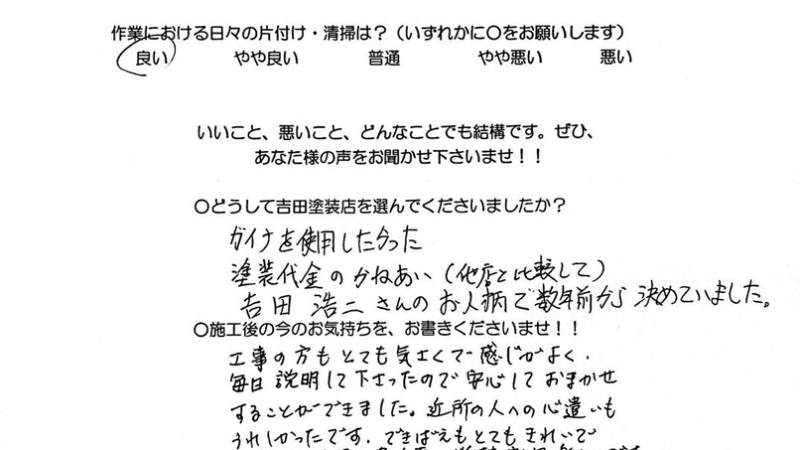 作業における日々の片付け・清掃は？（いずれかに〇をお願いします）
良い　やや良い　普通　やや悪い　悪い
いいこと、悪いこと、どんなことでも結構です。ぜひ、
あなた様の声をお聞かせ下さいませ！！
〇どうして吉田塗装店を選んでくださいましたか？
ガイナを使用したかった
塗装代金のかねあい（他店と比較して）
吉田 浩二さんのお人柄で数年前から決めていました。
〇施工後の今のお気持ちを、お書きくださいませ！！
工事の方もとても気さくで感じがよく、
毎日説明して下さったので安心しておまかせ
することができました。近所の人への心遣いも
うれしかったです。できばえもとてもきれいで